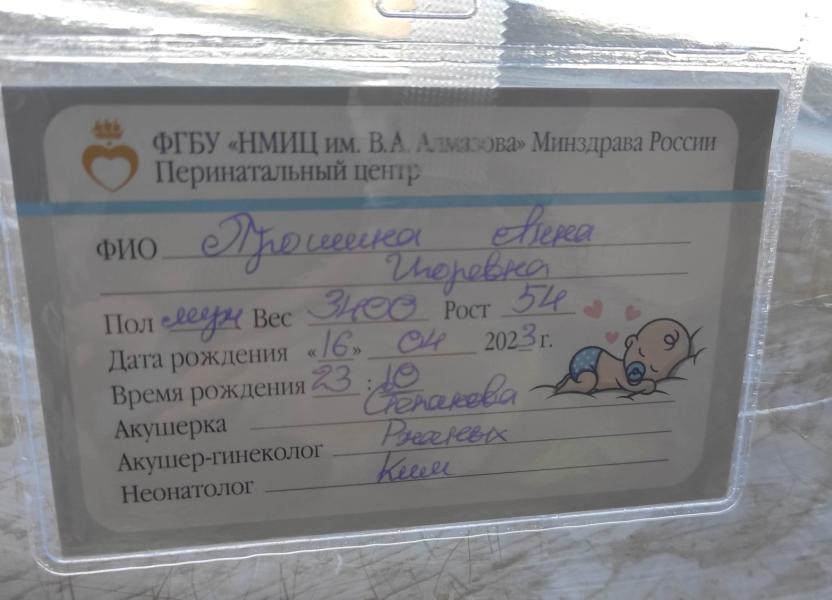 ФГБУ «НМИЦ им. В.А. Алмазова» Минздрава России
Перинатальный центр
ФИО Прошина Анна
Игоревна
Пол муж Вес 3400 Рост 54
Дата рождения «16» 04 2023 г.
Время рождения 23 : 10
Акушерка Степанова
Акушер-гинеколог Ржаных
Неонатолог Ким